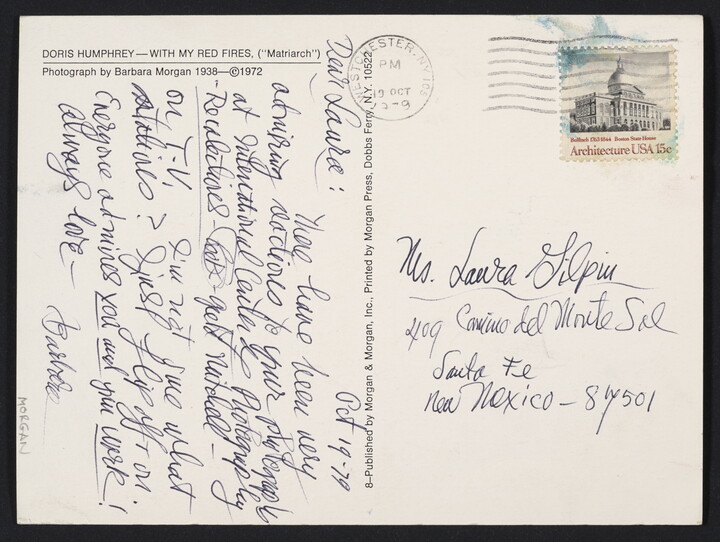 DORIS HUMPHREY—WITH MY RED FIRES, ("Matriarch")
Photograph by Barbara Morgan 1938—©1972
8–Published by Morgan & Morgan, Inc., Printed by Morgan Press, Dobbs Ferry, N.Y. 10522
WESTCHESTER, NY 105
PM
19 OCT
Bulfinch 1763-1844 Boston State House
Architecture USA 15c
Oct 19-79
Dear Laura:
There have been very
admiring reactions to your photographs
at International Center of Photography
- Recollections -
on T-V. I'm not sure what
stations? I just flip off + on
Everyone admires you and your work!
Always love — Barbara
MORGAN
Ms. Laura Gilpin
409 Camino del Monte Sol
Santa Fe
New Mexico – 87501